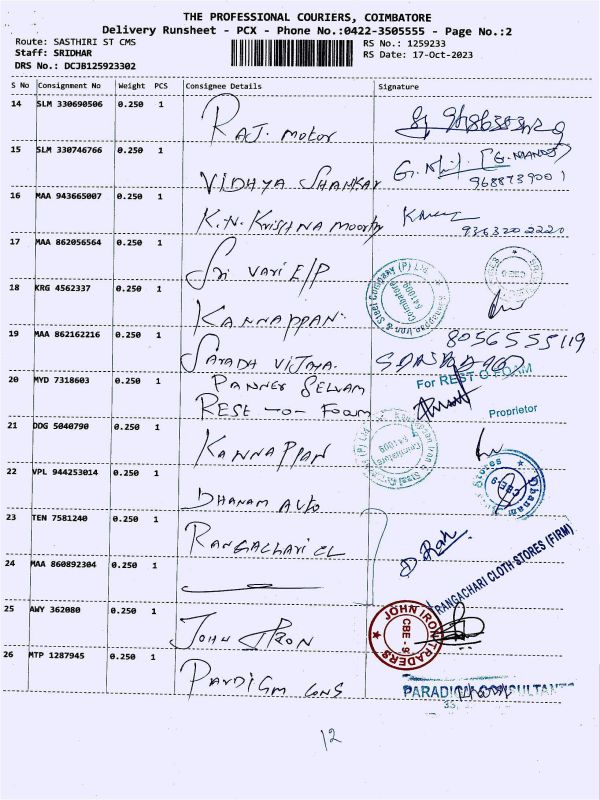 THE PROFESSIONAL COURIERS, COIMBATORE
Delivery Runsheet - PCX - Phone No.:0422-3505555 - Page No.:2
Route: SASTHIRI ST CMS RS No.: 1259233
Staff: SRIDHAR RS Date: 17-Oct-2023
DRS No.: DCJB125923302
S No Consignment No Weight PCS Consignee Details Signature
14 SLM 330690506 0.250 1 RAJ. motor
15 SLM 330746766 0.250 1 VIDHYA Shankar (G. MANOJ) 9688739001
16 MAA 943665007 0.250 1 K.N. Krishna moorthy 9363202220
17 MAA 862056564 0.250 1 Sri Vari E/P
18 KRG 4562337 0.250 1 KANNAPPAN. Kannappan Iron & Steel Company (P) Ltd. Coimbatore 641009
19 MAA 862162216 0.250 1 SARADH VIJAYA. 8056555119
20 MYD 7318603 0.250 1 PANNER SELVAM For REST O FOAM
REST -o- Foam Proprietor
21 DDG 5040790 0.250 1 KANNAPPAN Kannappan Iron & Steel Coimbatore 641009
22 VPL 944253014 0.250 1 DHANAM AUTO Dhanam Stores CBE-9
23 TEN 7581240 0.250 1 RANGACHARI CL
24 MAA 860892304 0.250 1 RANGACHARI CLOTH STORES (FIRM)
25 AWY 362080 0.250 1 JOHN IRON JOHN IRON TRADERS CBE - 9
26 MTP 1287945 0.250 1 PARDIGM CONS PARADIGM CONSULTANTS
12